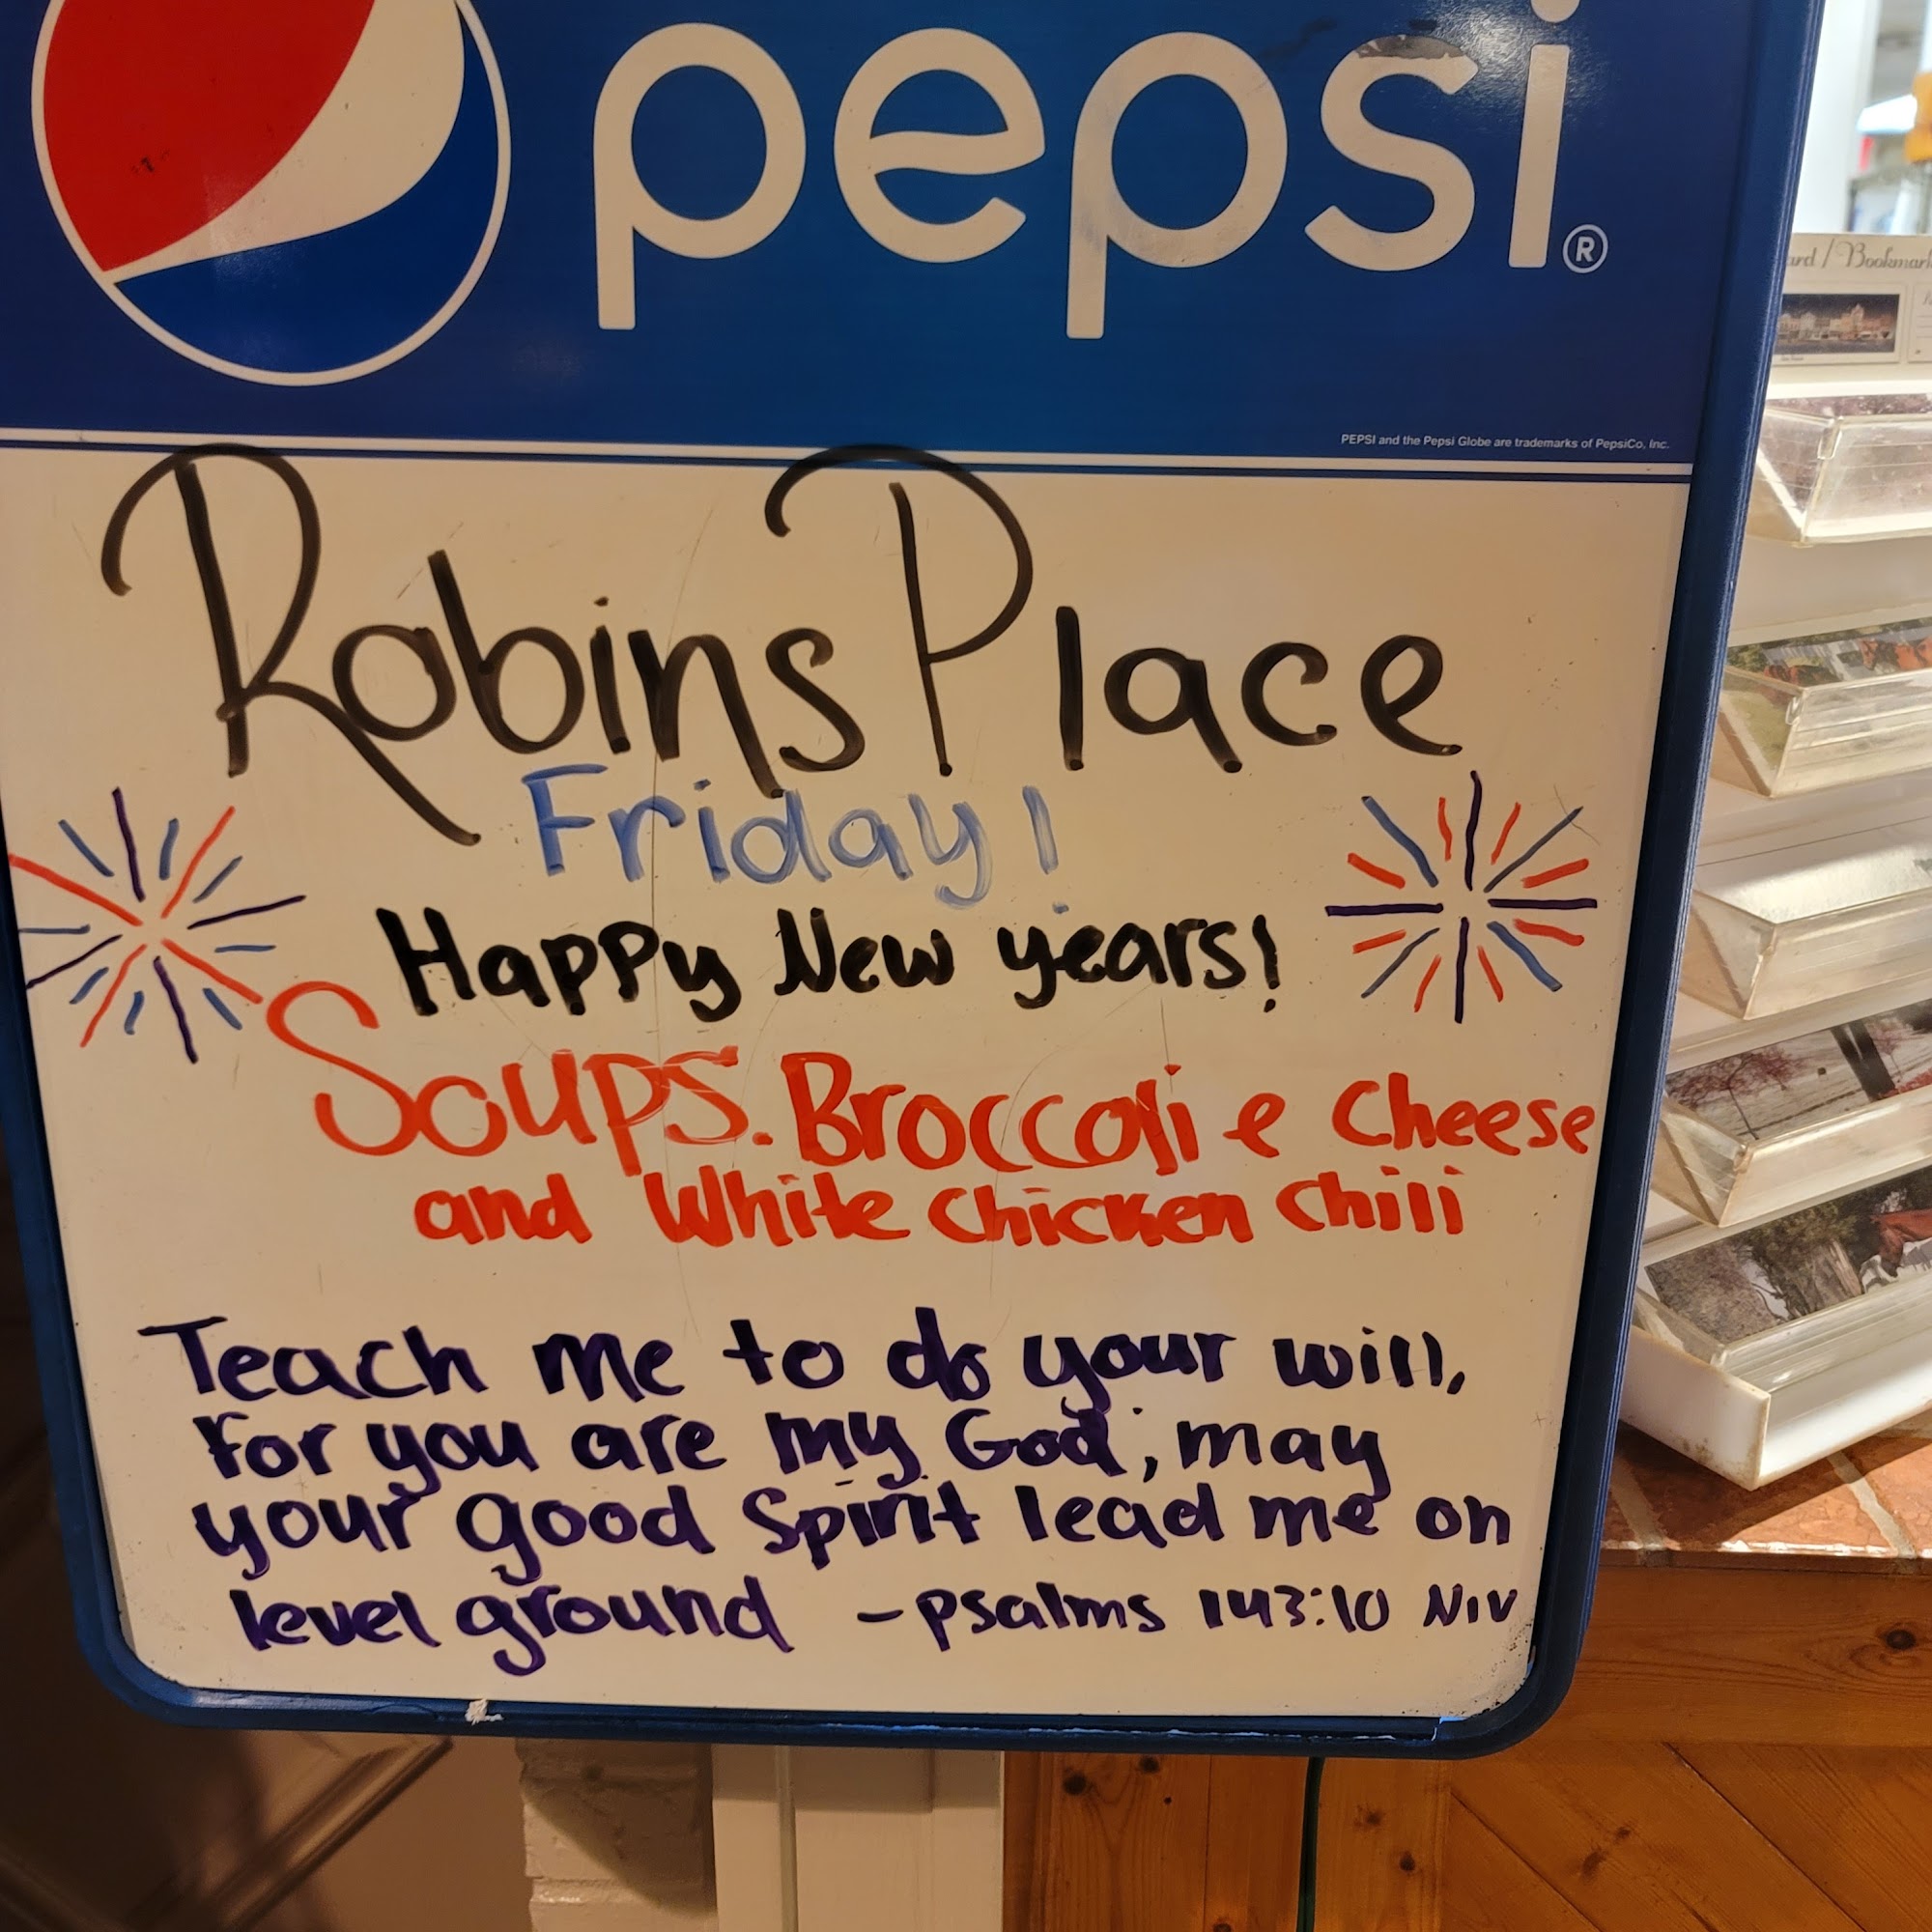 pepsi®
PEPSI and the Pepsi Globe are trademarks of PepsiCo, Inc.
Robins Place
Friday!
Happy New years!
Soups. Broccoli e Cheese
and White Chicken Chili
Teach me to do your will,
For you are my God; may
your good Spirit lead me on
level ground - Psalms 143:10 NIV
/ Bookmark